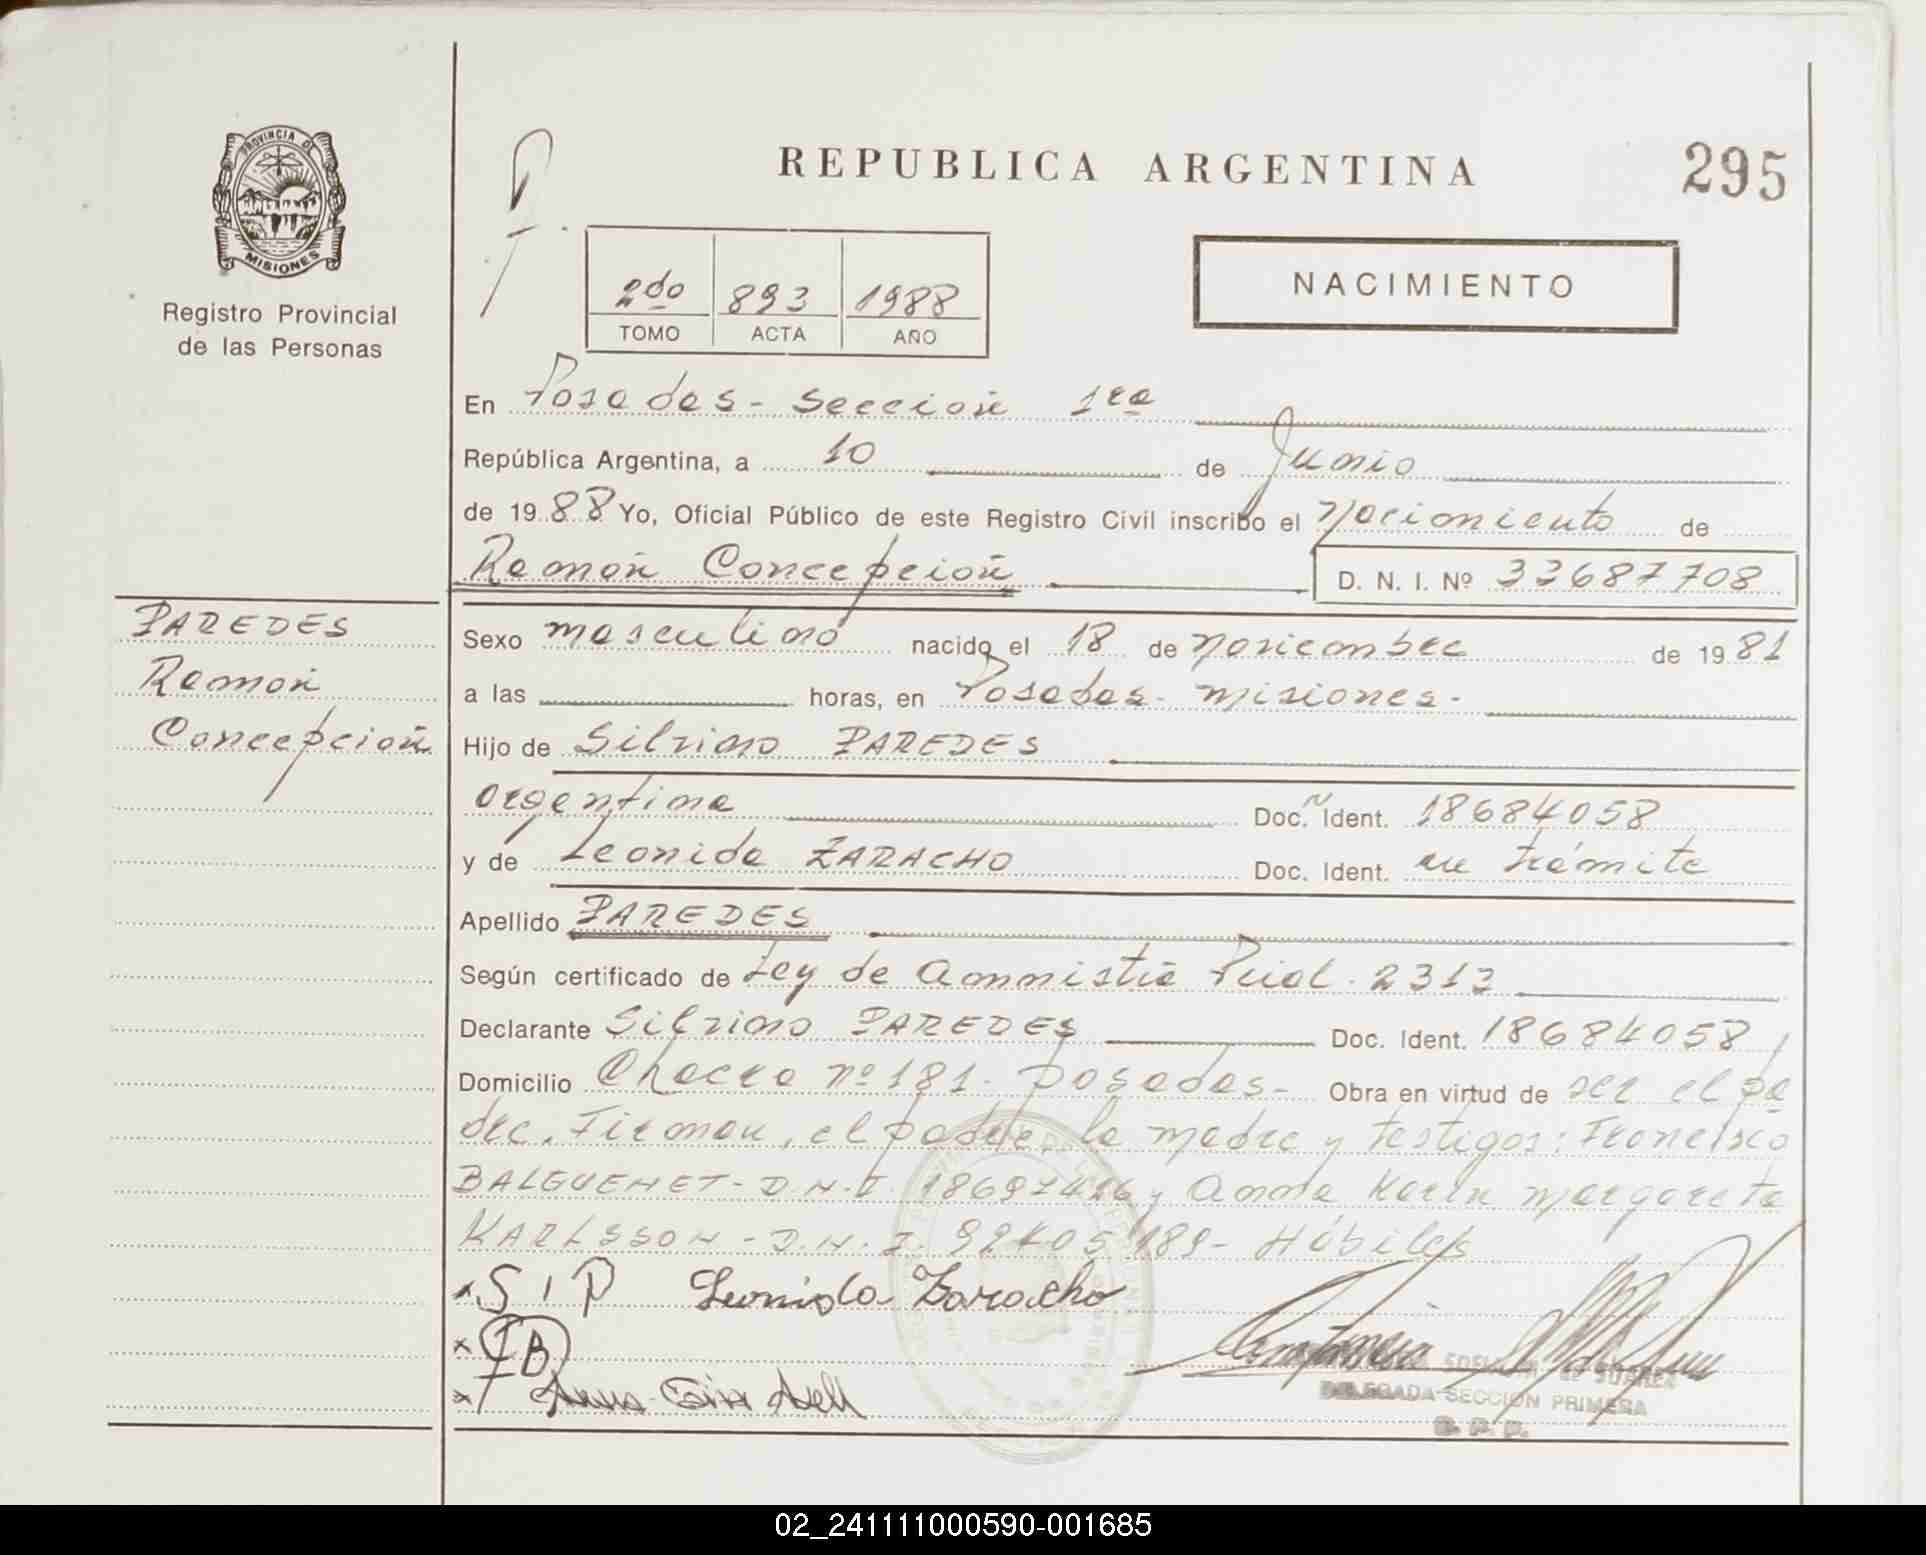 PROVINCIA DE
MISIONES
Registro Provincial
de las Personas
REPUBLICA ARGENTINA
295
2do 893 1988
TOMO ACTA AÑO
NACIMIENTO
En Posadas - Sección 1ra
República Argentina, a 10 de Junio
de 1988 Yo, Oficial Público de este Registro Civil inscribo el Nacimiento de
Ramón Concepción
D. N. I. Nº 33687708
PAREDES
Ramón
Concepción
Sexo masculino nacido el 18 de Noviembre de 1981
a las horas, en Posadas - Misiones -
Hijo de Silvino PAREDES
argentina Doc. Ident. 18684058
y de Leonida ZARACHO Doc. Ident. en trámite
Apellido PAREDES
Según certificado de Ley de Amnistía Pcial. 2313
Declarante Silvino PAREDES Doc. Ident. 18684058
Domicilio Chacra nº 181 - Posadas - Obra en virtud de ser el pa
dre. Firman, el padre, la madre y testigos: Francisco
BALGUENET - D.N.I. y Anna Karin Margareta
KARLSSON - D.N.I. 92405189 - Hábiles
x S I P Leonida Zaracho
x
x
DELEGADA SECCION PRIMERA
02_241111000590-001685